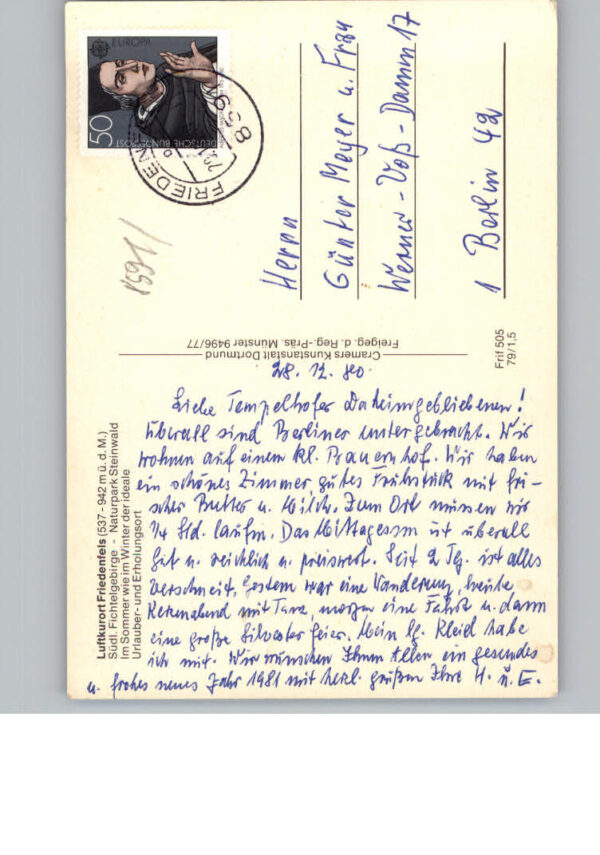 28.12.80.
Liebe Tempelhofer Daheimgebliebenen!
Überall sind Berliner untergebracht. Wir
wohnen auf einem kl. Bauernhof. Wir haben
ein schönes Zimmer, gutes Frühstück mit fri-
scher Butter u. Milch. Zum Ort müssen wir
1/4 Std. laufen. Das Mittagessen ist überall
gut u. reichlich u. preiswert. Seit 2 Tg. ist alles
verschneit, gestern war eine Wanderung, heute
Kerzenabend mit Tanz, morgen eine Fahrt u. dann
eine große Silvesterfeier. Mein lg. Kleid habe
ich mit. Wir wünschen Ihnen Allen ein gesundes
u. frohes neues Jahr 1981 mit herzl. grüßen Ihre H. u. E.
Herrn
Günter Meyer u. Frau
Werner-Voß-Damm 17
1 Berlin 42
Luftkurort Friedenfels (537 - 942 m ü. d. M.)
Südl. Fichtelgebirge - Naturpark Steinwald
Im Sommer wie im Winter der ideale
Urlauber- und Erholungsort
Cramers Kunstanstalt Dortmund
Freigeg. d. Reg.-Präs. Münster 9496/77
Frif 505
79/1,5
EUROPA
50
DEUTSCHE BUNDESPOST
8591